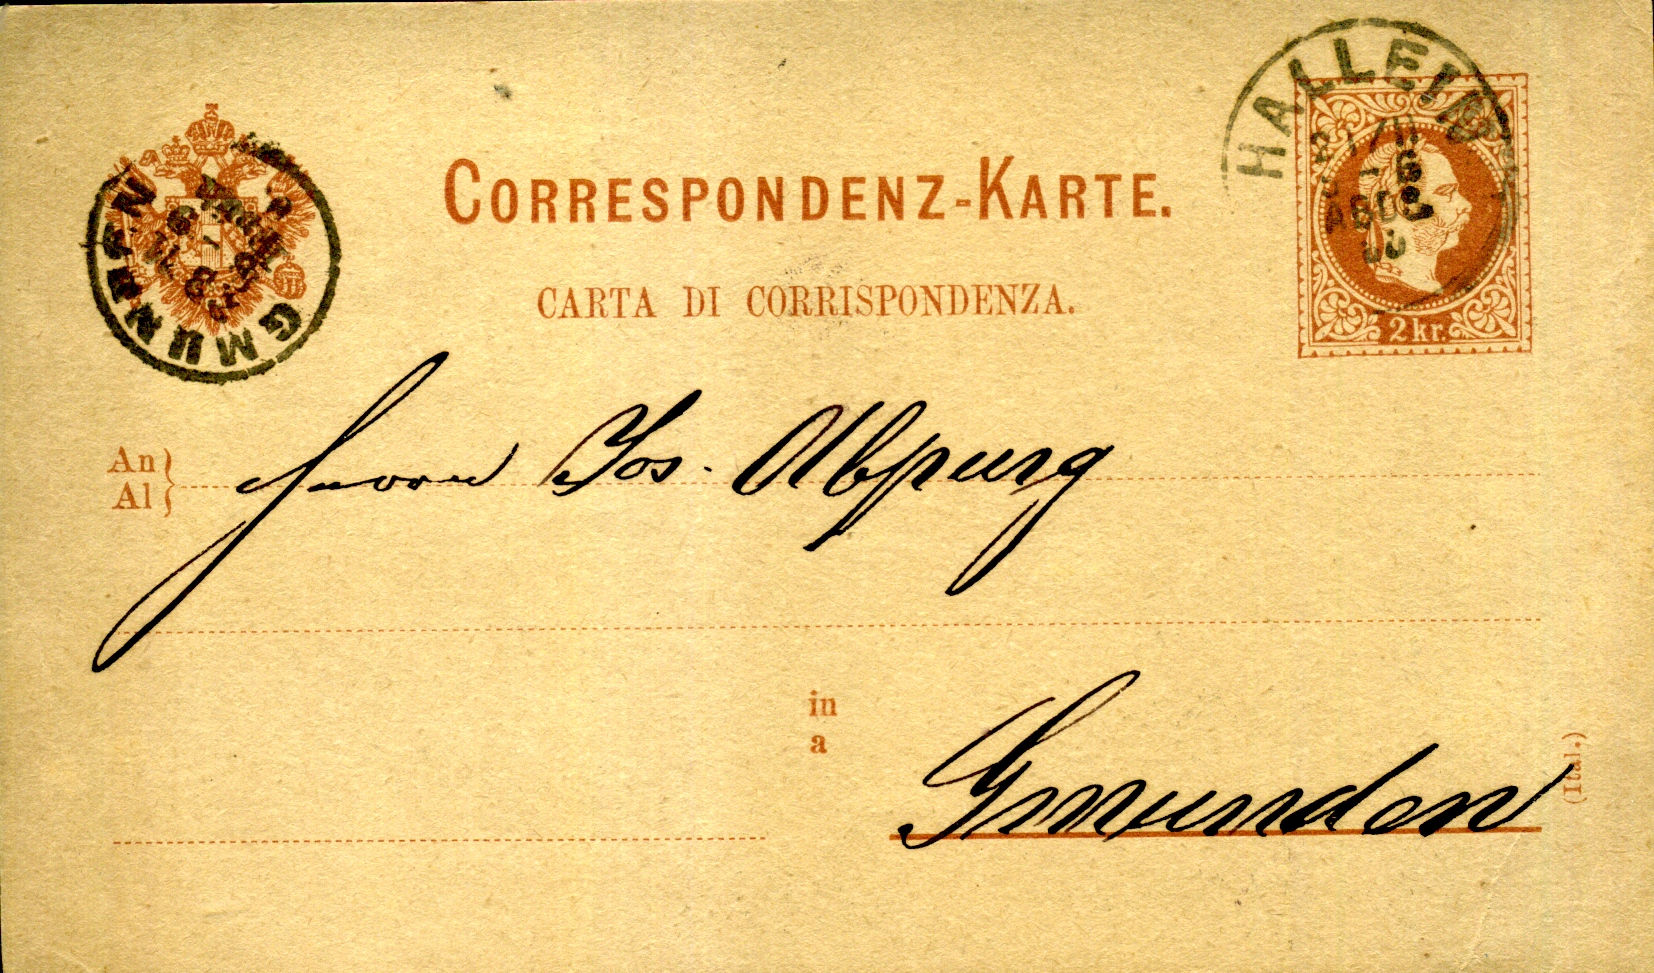 CORRESPONDENZ-KARTE.
CARTA DI CORRISPONDENZA.
HALLEIN
2 kr.
GMUNDEN
An
Al
Herrn Jos. Abpurg
in
a
Gmunden
(Ital.)